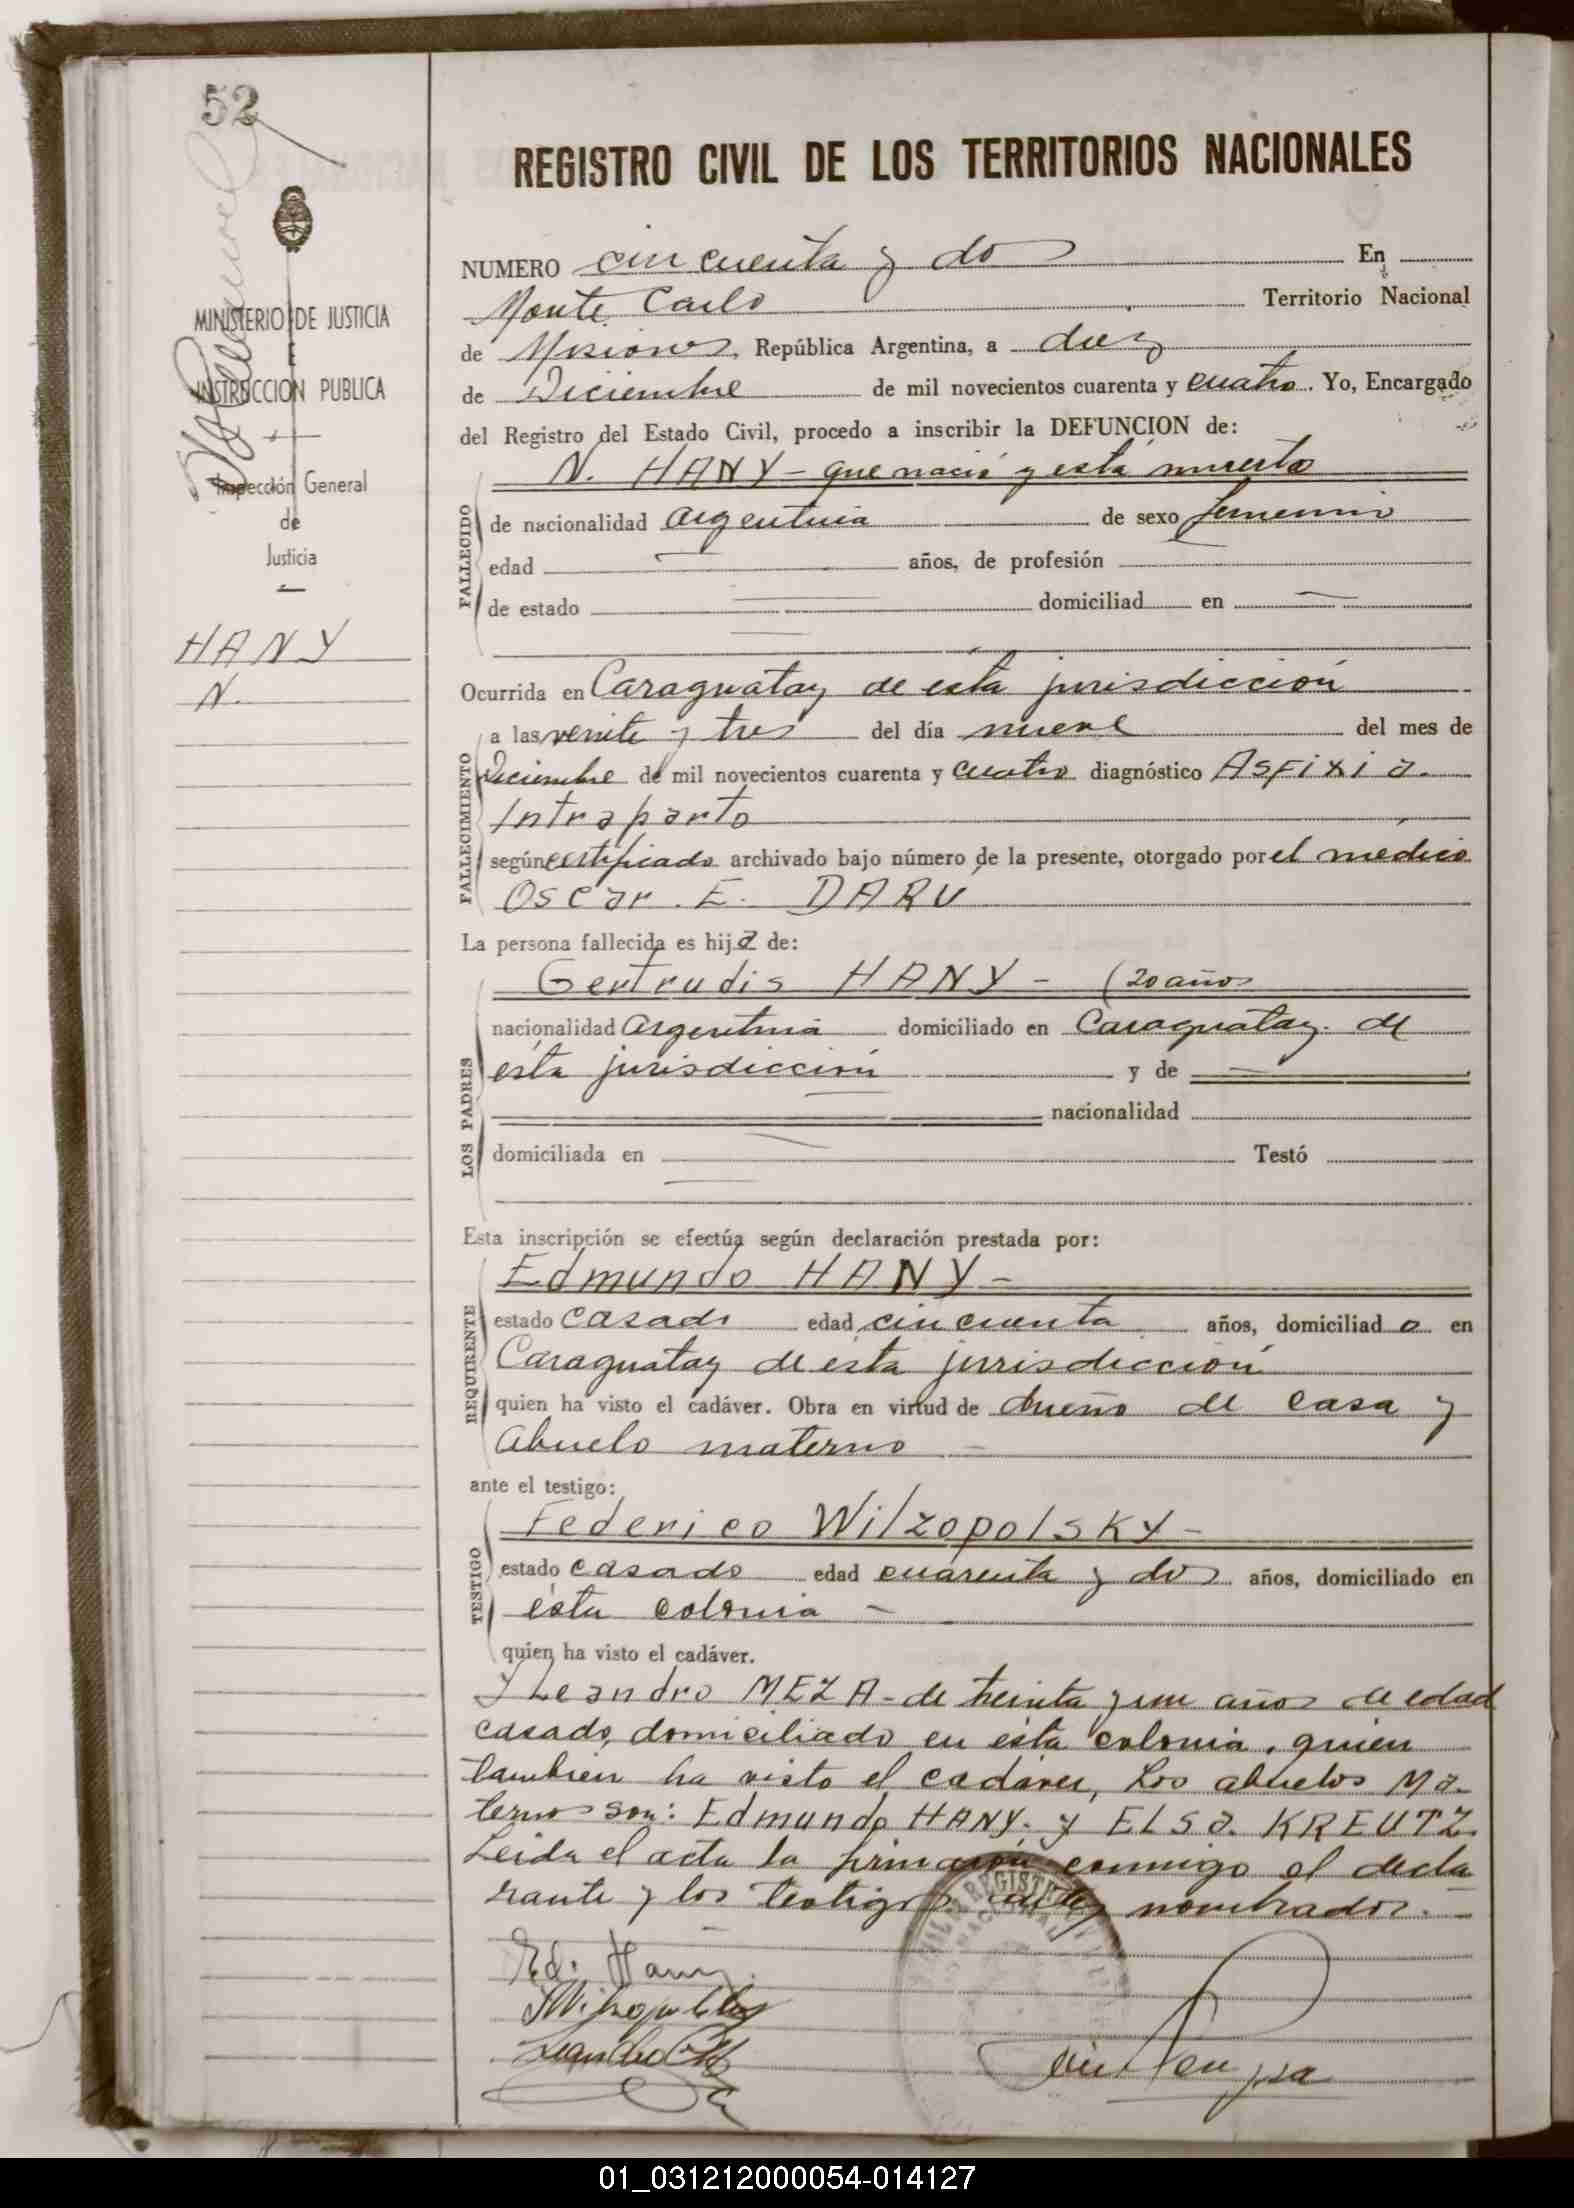 52
MINISTERIO DE JUSTICIA
E
INSTRUCCION PUBLICA
Inspección General
de
Justicia
HANY
N.
REGISTRO CIVIL DE LOS TERRITORIOS NACIONALES
NUMERO cincuenta y dos En
Monte Carlo Territorio Nacional
de Misiones, República Argentina, a diez
de Diciembre de mil novecientos cuarenta y cuatro. Yo, Encargado
del Registro del Estado Civil, procedo a inscribir la DEFUNCION de:
N. HANY - que nació y está muerta
FALLECIDO
de nacionalidad Argentina de sexo femenino
edad años, de profesión
de estado domiciliad en
Ocurrida en Caraguatay de ésta jurisdicción
FALLECIMIENTO
a las veinte y tres del día nueve del mes de
Diciembre de mil novecientos cuarenta y cuatro diagnóstico Asfixia.
Intraparto
según certificado archivado bajo número de la presente, otorgado por el médico
Oscar. E. DARÚ
La persona fallecida es hija de:
LOS PADRES
Gertrudis HANY - (20 años
nacionalidad Argentina domiciliado en Caraguatay. de
ésta jurisdicción y de
nacionalidad
domiciliada en Testó
Esta inscripción se efectúa según declaración prestada por:
REQUIRENTE
Edmundo HANY -
estado casado edad cincuenta años, domiciliado en
Caraguatay de ésta jurisdicción
quien ha visto el cadáver. Obra en virtud de dueño de casa y
Abuelo materno -
ante el testigo:
TESTIGO
Federico Wilzopolsky -
estado casado edad cuarenta y dos años, domiciliado en
ésta colonia -
quien ha visto el cadáver.
Y Leandro MEZA - de treinta y un años de edad
casado, domiciliado en ésta colonia, quien
tambien ha visto el cadáver, Los abuelos Ma-
ternos son: Edmundo HANY. y ELSA. KREUTZ.
Leida el acta la firmaron conmigo el decla
rante y los testigos antes nombrados. -
Ed. Hany.
01_031212000054-014127